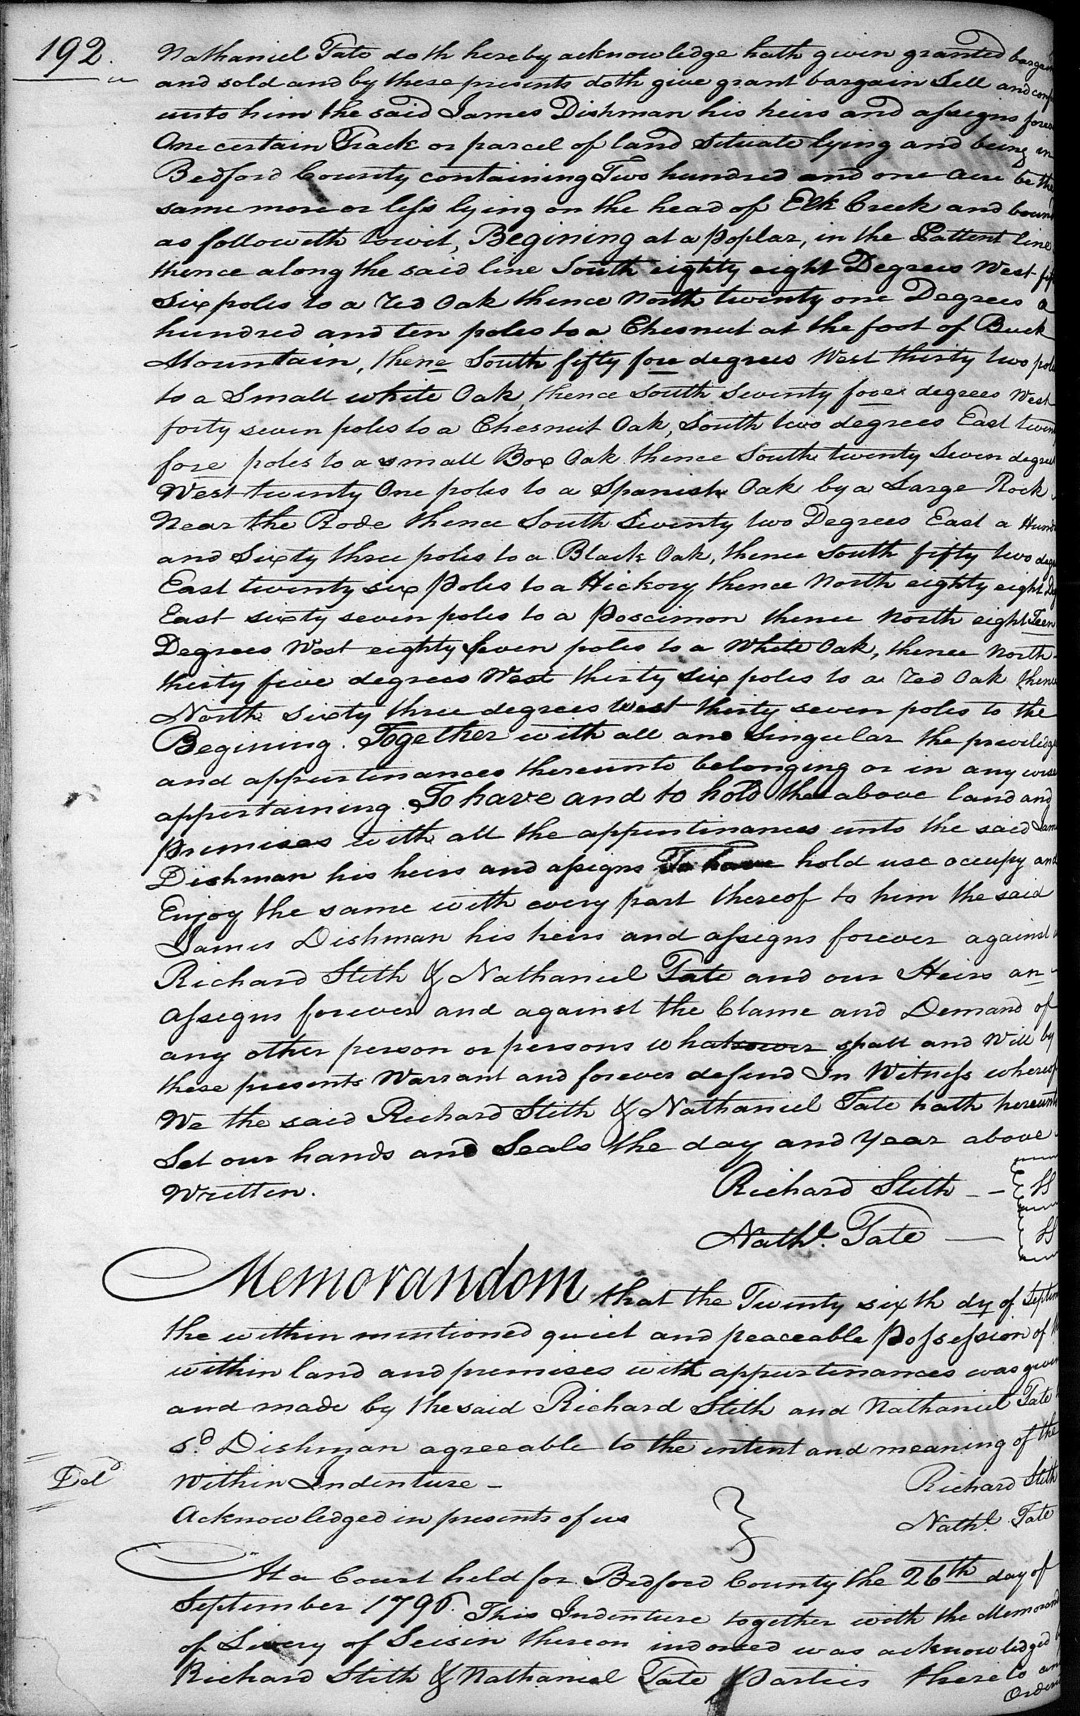 192.
Nathaniel Tate doth hereby acknowledge hath given granted bargain
and sold and by these presents doth give grant bargain Sell and conf
unto him the said James Dishman his heirs and assigns forev
One certain Track or parcel of land Situate lying and being in
Bedford County containing Two hundred and one Acre be the
same more or less lying on the head of Elk Creek and bound
as followeth towit, Begining at a Poplar, in the Pattent line
thence along the said line South eighty eight Degrees West fif
Six poles to a red Oak thence North twenty one Degrees a
hundred and ten poles to a Chesnut at the foot of Buck
Mountain, thene South fifty fore degrees West thirty two pole
to a Small white Oak, thence south Seventy fore degrees West
forty seven poles to a Chesnut Oak, South two degrees East twen
fore poles to a small Box Oak thence South twenty Seven degree
West twenty One poles to a Spanish Oak by a Large Rock
Near the Rode thence South Seventy two Degrees East a Hund
and Sixty three poles to a Black Oak, thence South fifty two deg
East twenty six Poles to a Hickory thence North eighty eight Deg
East sixty seven poles to a Poscimon thence North eightTeen
Degrees West eighty Seven poles to a White Oak, thence North
thirty five degrees West thirty six poles to a red Oak thence
North Sixty three degrees west thirty seven poles to the
Begining. Together with all and Singular the priviledge
and appurtinances thereunto belonging or in any wise
appertaining To have and to hold the above land and
Premises with all the appurtinances unto the said Jam
Dishman his heirs and assigns To have hold use occupy and
Enjoy the same with every part thereof to him the said
James Dishman his heirs and assigns forever against
Richard Stith & Nathaniel Tate and our Heirs an
assigns forever and against the Clame and Demand of
any other person or persons whatsoever shall and Will by
these presents Warrant and forever defend In Witness whereof
We the said Richard Stith & Nathaniel Tate hath hereunto
Set our hands and Seals the day and Year above
Written. Richard Stith
Nathl. Tate
Memorandom that the Twenty sixth dy of Septem
the within mentioned quiet and peaceable Possession of
within land and premises with appurtinances was given
and made by the said Richard Stith and Nathaniel Tate
sd. Dishman agreeable to the intent and meaning of the
Deld. Within Indenture – Richard Stith
Acknowledged in presents of us Nathl. Tate
At a Court held for Bedford County the 26th day of
September 1796. This Indenture together with the Memorand
of Livery of Seisin thereon indorsed was acknowledged
Richard Stith & Nathaniel Tate Parties thereto an
Ordere